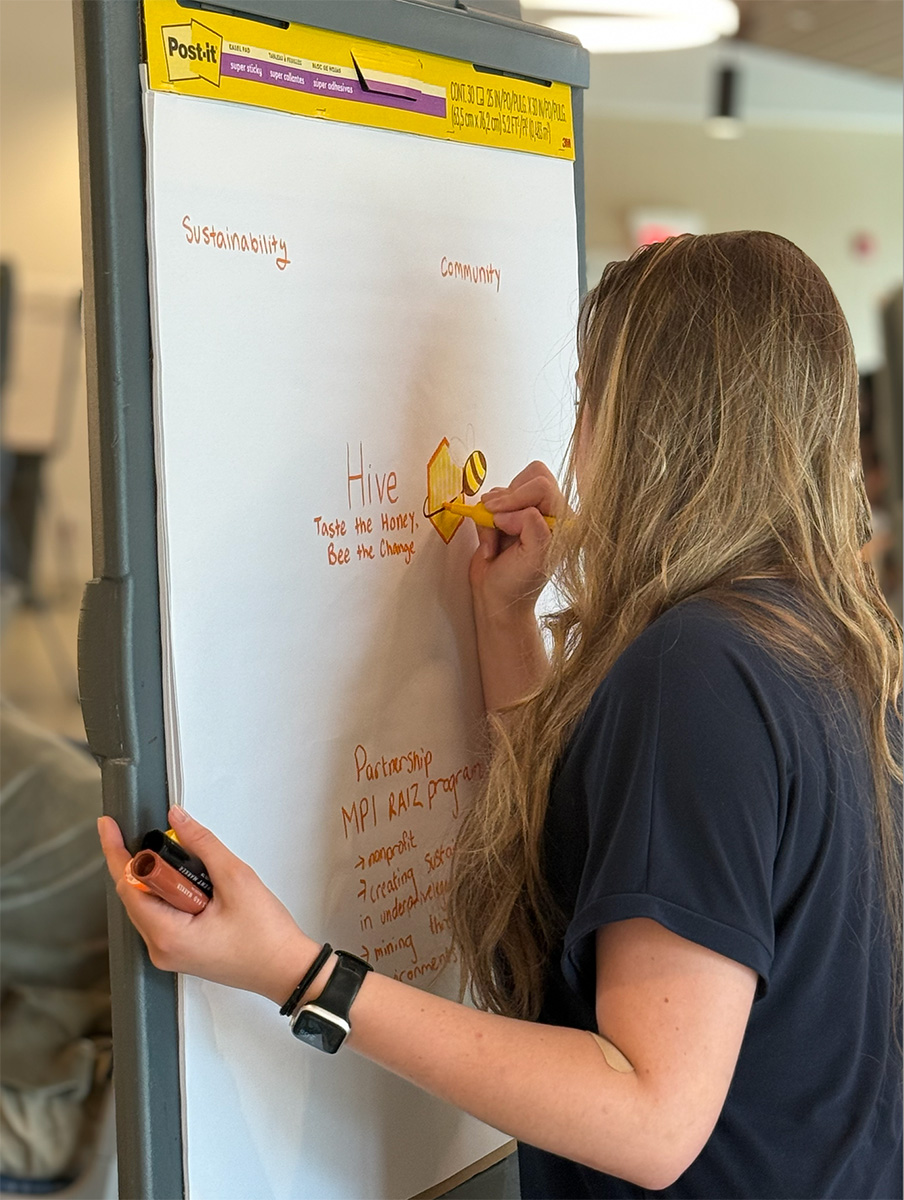 Post-it
EASEL PAD
super sticky
TABLEAU À FEUILLES
super collantes
BLOC DE HOJAS
súper adhesivas
CONT. 30 25 IN/PO/PULG. X 30 IN/PO/PULG.
(63,5 cm x 76,2 cm) 5.2 FT²/PI² (0,483 m²)
3M
Sustainability
Community
Hive
Taste the Honey,
Bee the Change
Partnership
MPI RAIZ program
→ nonprofit
→ creating
in
→ mining